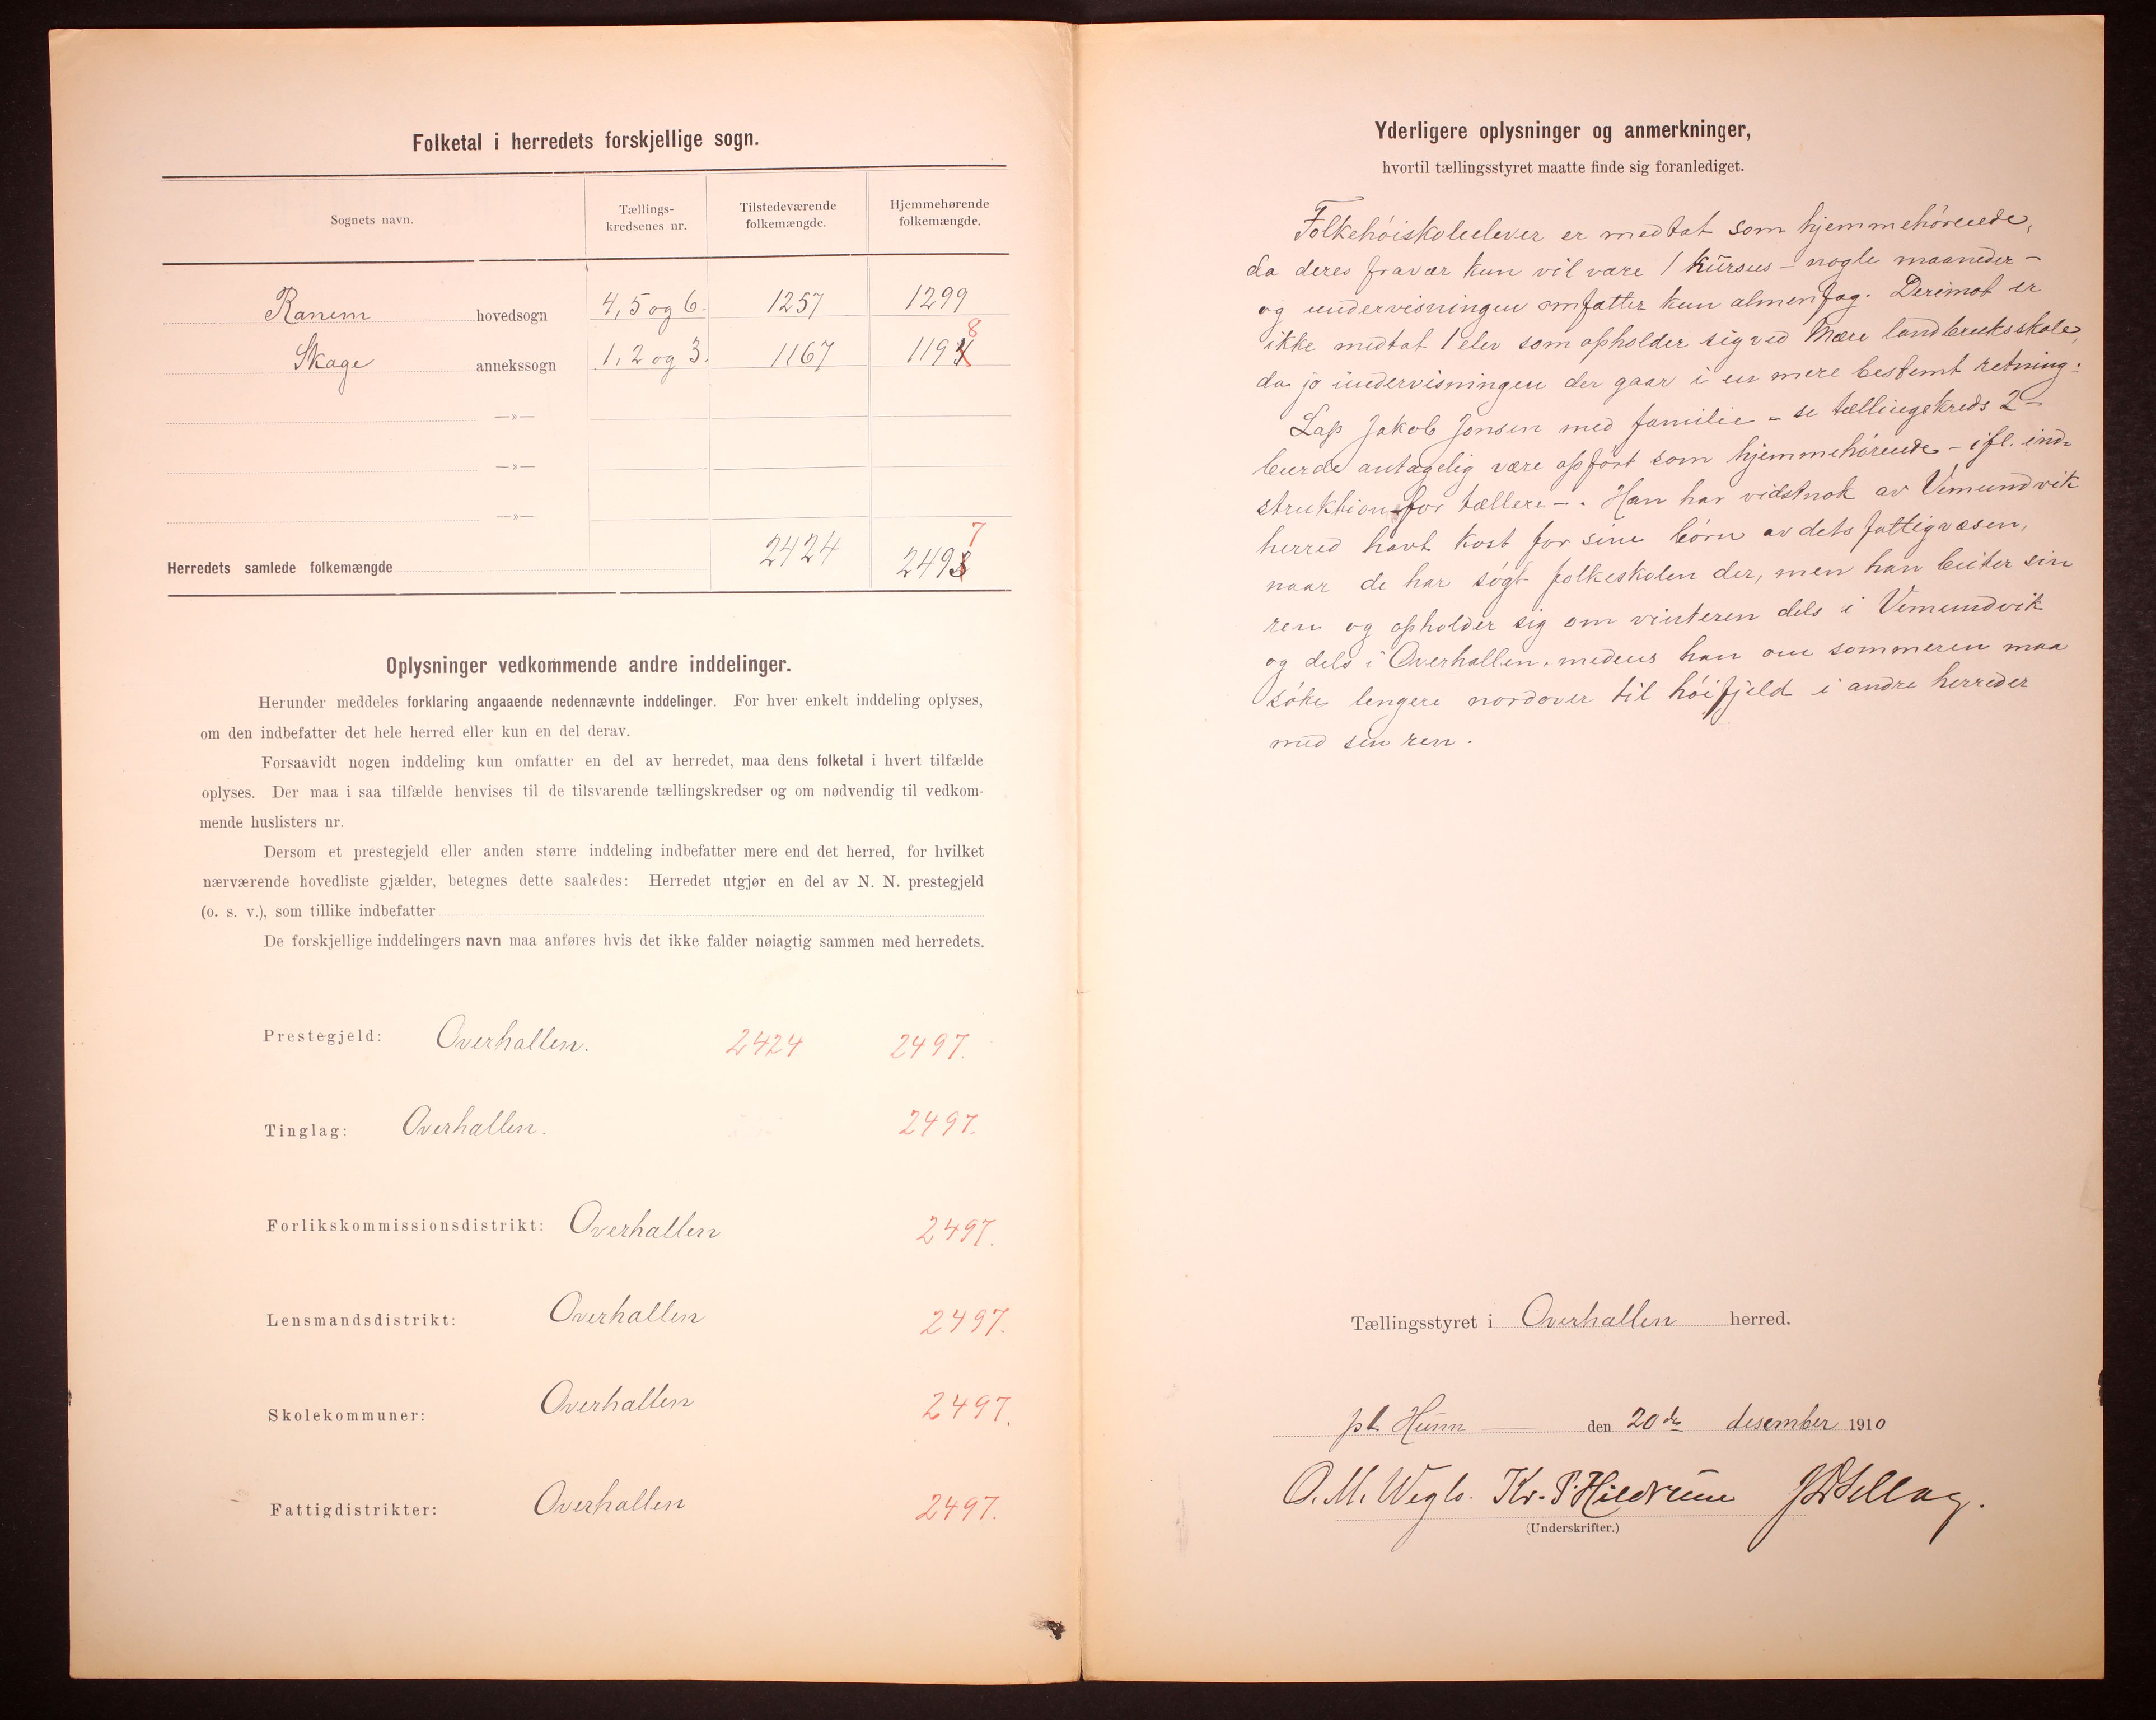 Folketal i herredets forskjellige sogn.
Sognets navn.
Tællings-
kredsenes nr.
Tilstedeværende
folkemængde.
Hjemmehørende
folkemængde.
Ranem hovedsogn 4, 5 og 6. 1257 1299
8
Skage annekssogn 1, 2 og 3. 1167 1194
—»—
—»—
—»—
7
Herredets samlede folkemængde 2424 2493
Oplysninger vedkommende andre inddelinger.
Herunder meddeles forklaring angaaende nedennævnte inddelinger. For hver enkelt inddeling oplyses,
om den indbefatter det hele herred eller kun en del derav.
Forsaavidt nogen inddeling kun omfatter en del av herredet, maa dens folketal i hvert tilfælde
oplyses. Der maa i saa tilfælde henvises til de tilsvarende tællingskredser og om nødvendig til vedkom-
mende huslisters nr.
Dersom et prestegjeld eller anden større inddeling indbefatter mere end det herred, for hvilket
nærværende hovedliste gjælder, betegnes dette saaledes: Herredet utgjør en del av N. N. prestegjeld
(o. s. v.), som tillike indbefatter
De forskjellige inddelingers navn maa anføres hvis det ikke falder nøiagtig sammen med herredets.
Prestegjeld: Overhallen. 2424 2497.
Tinglag: Overhallen. 2497.
Forlikskommissionsdistrikt: Overhallen 2497.
Lensmandsdistrikt: Overhallen 2497.
Skolekommuner: Overhallen 2497.
Fattigdistrikter: Overhallen 2497.
Yderligere oplysninger og anmerkninger,
hvortil tællingsstyret maatte finde sig foranlediget.
Folkehöiskoleelever er medtat som hjemmehörende,
da deres fravær kun vil være 1 kursus – nogle maaneder –
og undervisningen omfatter kun almenfag. Derimot er
ikke medtat 1 elev som opholder sig ved Mære landbruksskole,
da jo undervisningen der gaar i en mere bestemt retning.
Lap Jakob Jonsen med familie – se tællingskreds 2 –
burde antagelig være opfört som hjemmehörende – ifl. ind=
struktion for tællere –. Han har vidstnok av Vemundvik
herred havt kost for sine börn av dets fattigvæsen,
naar de har sögt folkeskolen der, men han beiter sin
ren og opholder sig om vinteren dels i Vemundvik
og dels i Overhallen, medens han om sommeren maa
söke lengere nordover til höifjeld i andre herreder
med sin ren.
Tællingsstyret i Overhallen herred.
pt Hunn den 20de desember 1910
O. M. Weglo. Kr. P. Hildrum
(Underskrifter.)